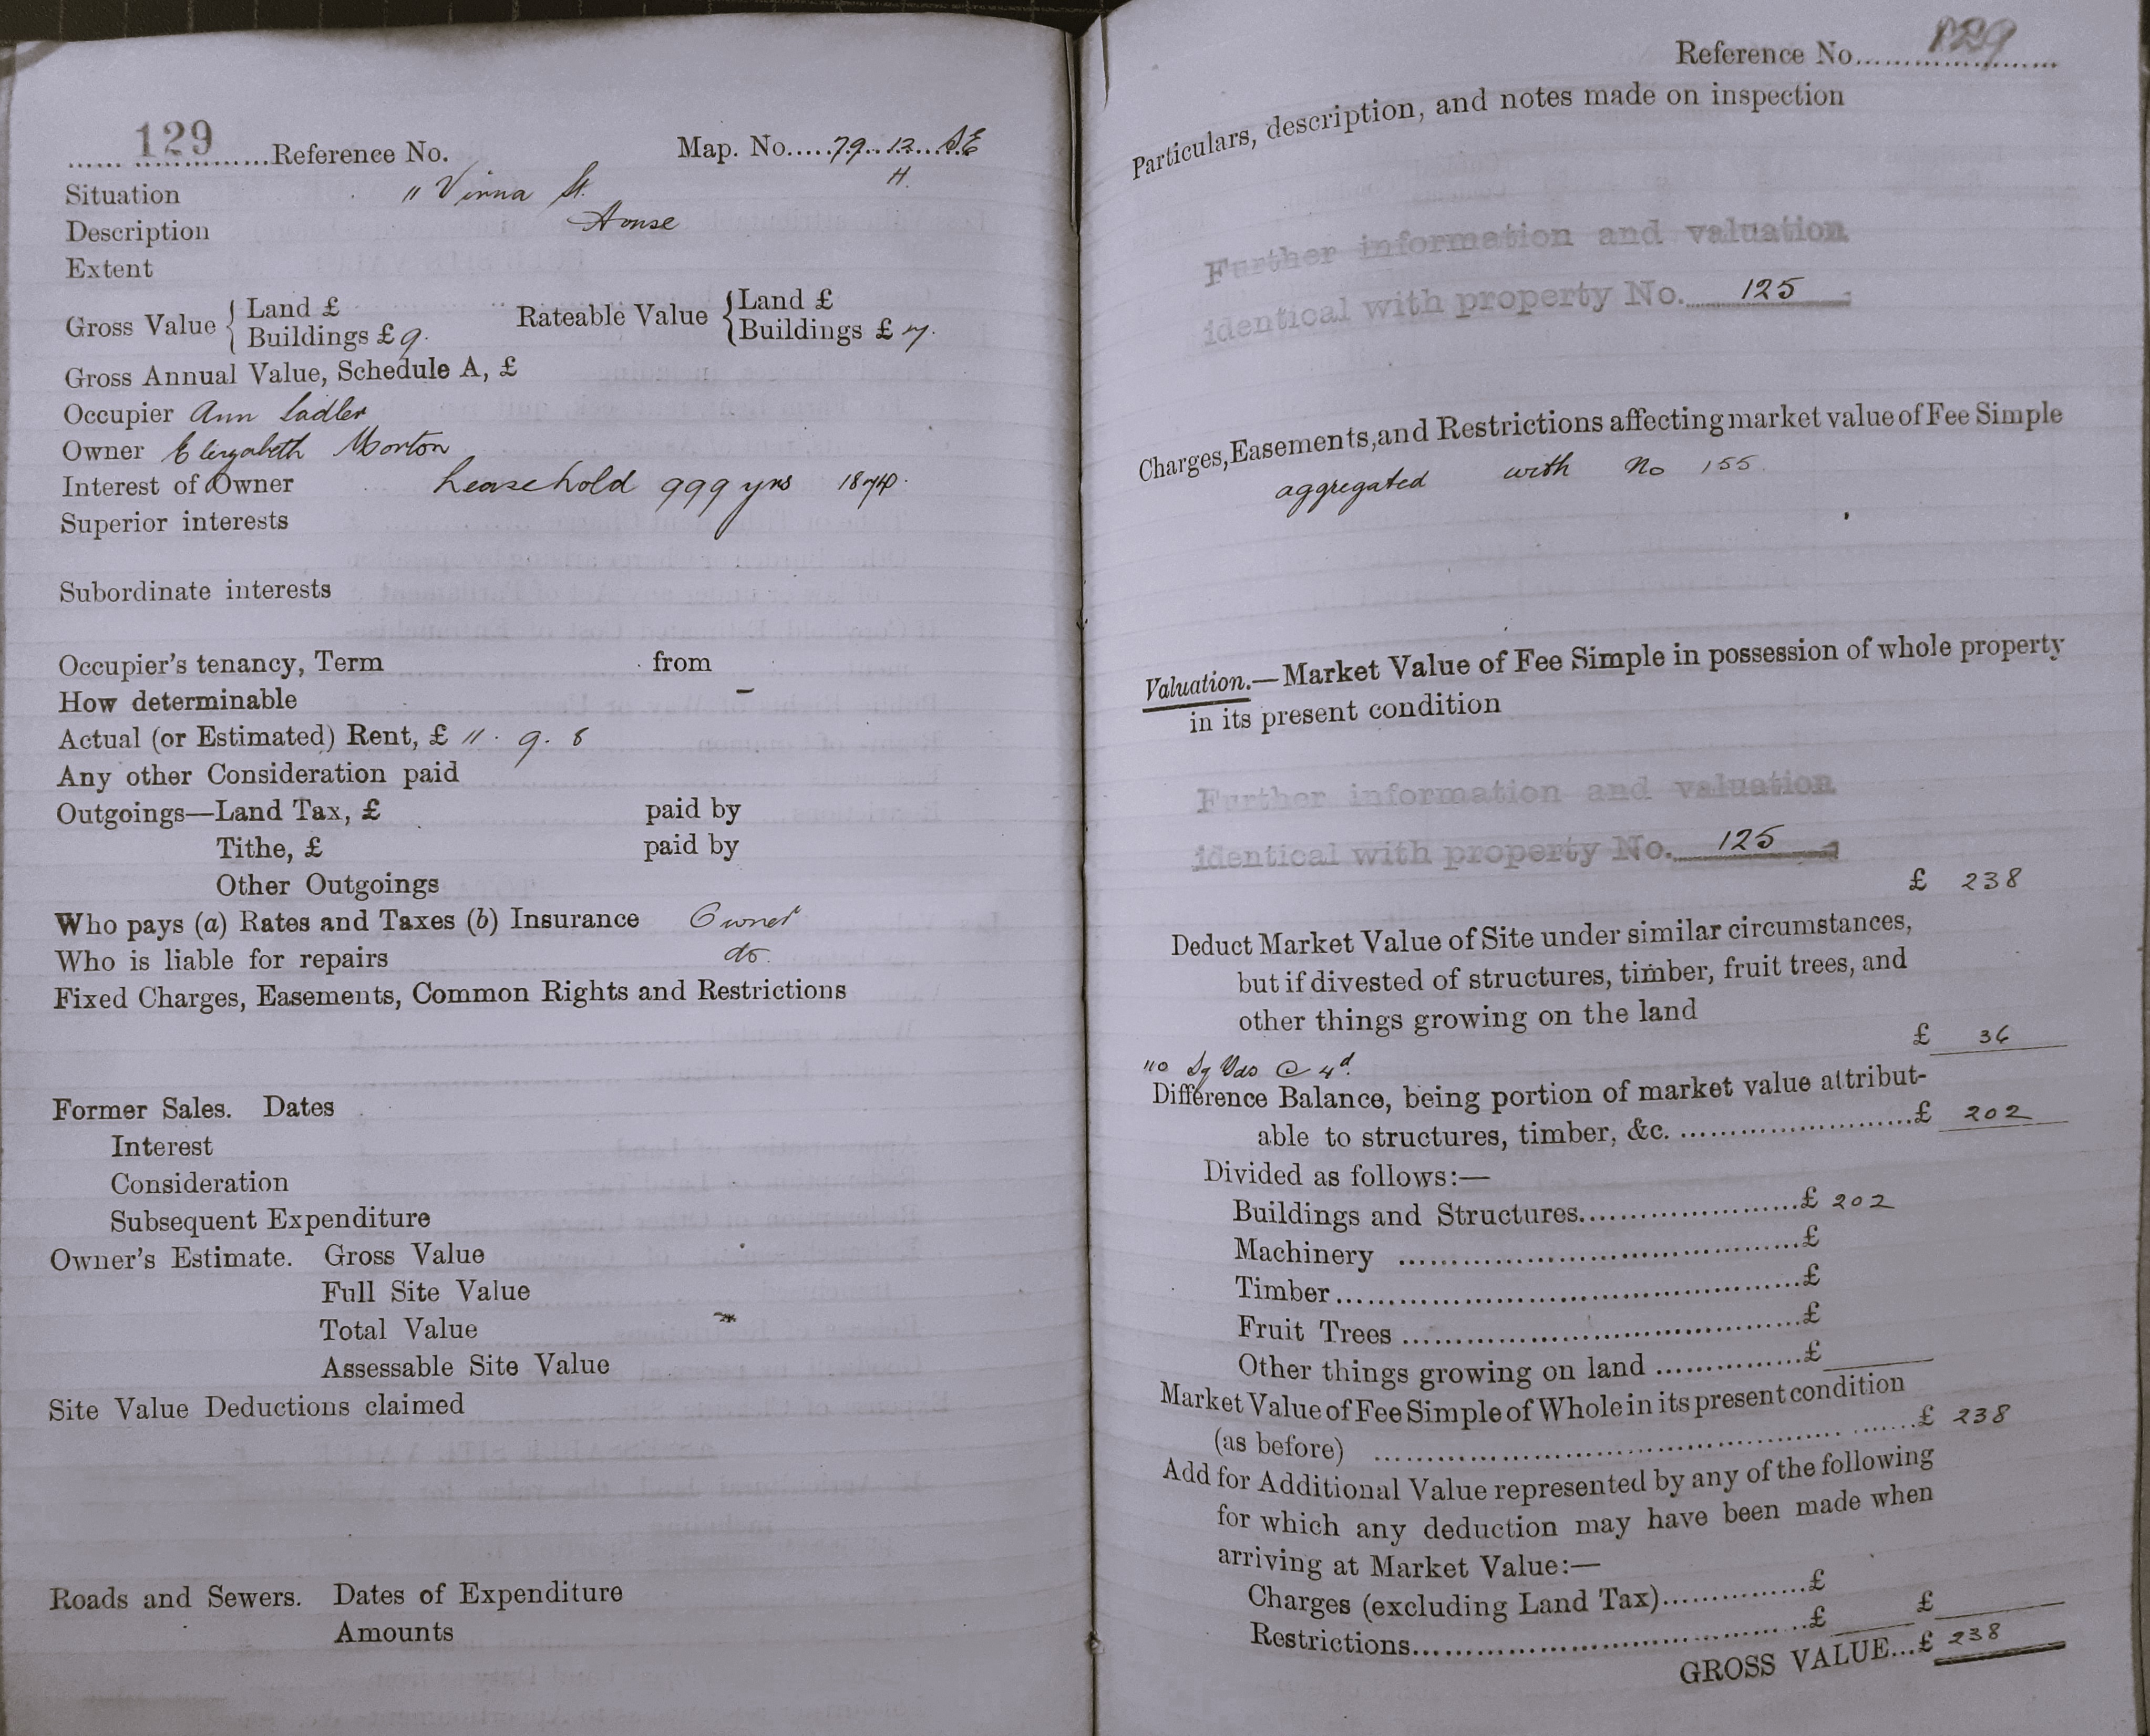 129 Reference No. Map. No. 79. 12. SE
H.
Situation 11 Vinna St.
Description House
Extent
Gross Value { Land £
Buildings £ 9. Rateable Value { Land £
Buildings £ 7.
Gross Annual Value, Schedule A, £
Occupier Ann Sadler
Owner Elizabeth Morton
Interest of Owner Leasehold 999 yrs
Superior interests
Subordinate interests
Occupier's tenancy, Term from
How determinable –
Actual (or Estimated) Rent, £ 11. 9. 8
Any other Consideration paid
Outgoings—Land Tax, £ paid by
Tithe, £ paid by
Other Outgoings
Who pays (a) Rates and Taxes (b) Insurance Owner
Who is liable for repairs do.
Fixed Charges, Easements, Common Rights and Restrictions
Former Sales. Dates
Interest
Consideration
Subsequent Expenditure
Owner's Estimate. Gross Value
Full Site Value
Total Value
Assessable Site Value
Site Value Deductions claimed
Roads and Sewers. Dates of Expenditure
Amounts
Reference No. 129
Particulars, description, and notes made on inspection
Further information and valuation
identical with property No. 125
Charges, Easements, and Restrictions affecting market value of Fee Simple
aggregated with no 155
Valuation.—Market Value of Fee Simple in possession of whole property
in its present condition
Further information and valuation
identical with property No. 125
£ 238
Deduct Market Value of Site under similar circumstances,
but if divested of structures, timber, fruit trees, and
other things growing on the land
£ 36
110 Sq Yds @ 4d.
Difference Balance, being portion of market value attribut-
able to structures, timber, &c. £ 202
Divided as follows:—
Buildings and Structures £ 202
Machinery £
Timber £
Fruit Trees £
Other things growing on land £
Market Value of Fee Simple of Whole in its present condition
(as before) £ 238
Add for Additional Value represented by any of the following
for which any deduction may have been made when
arriving at Market Value:—
Charges (excluding Land Tax) £
Restrictions £ £
GROSS VALUE...£ 238